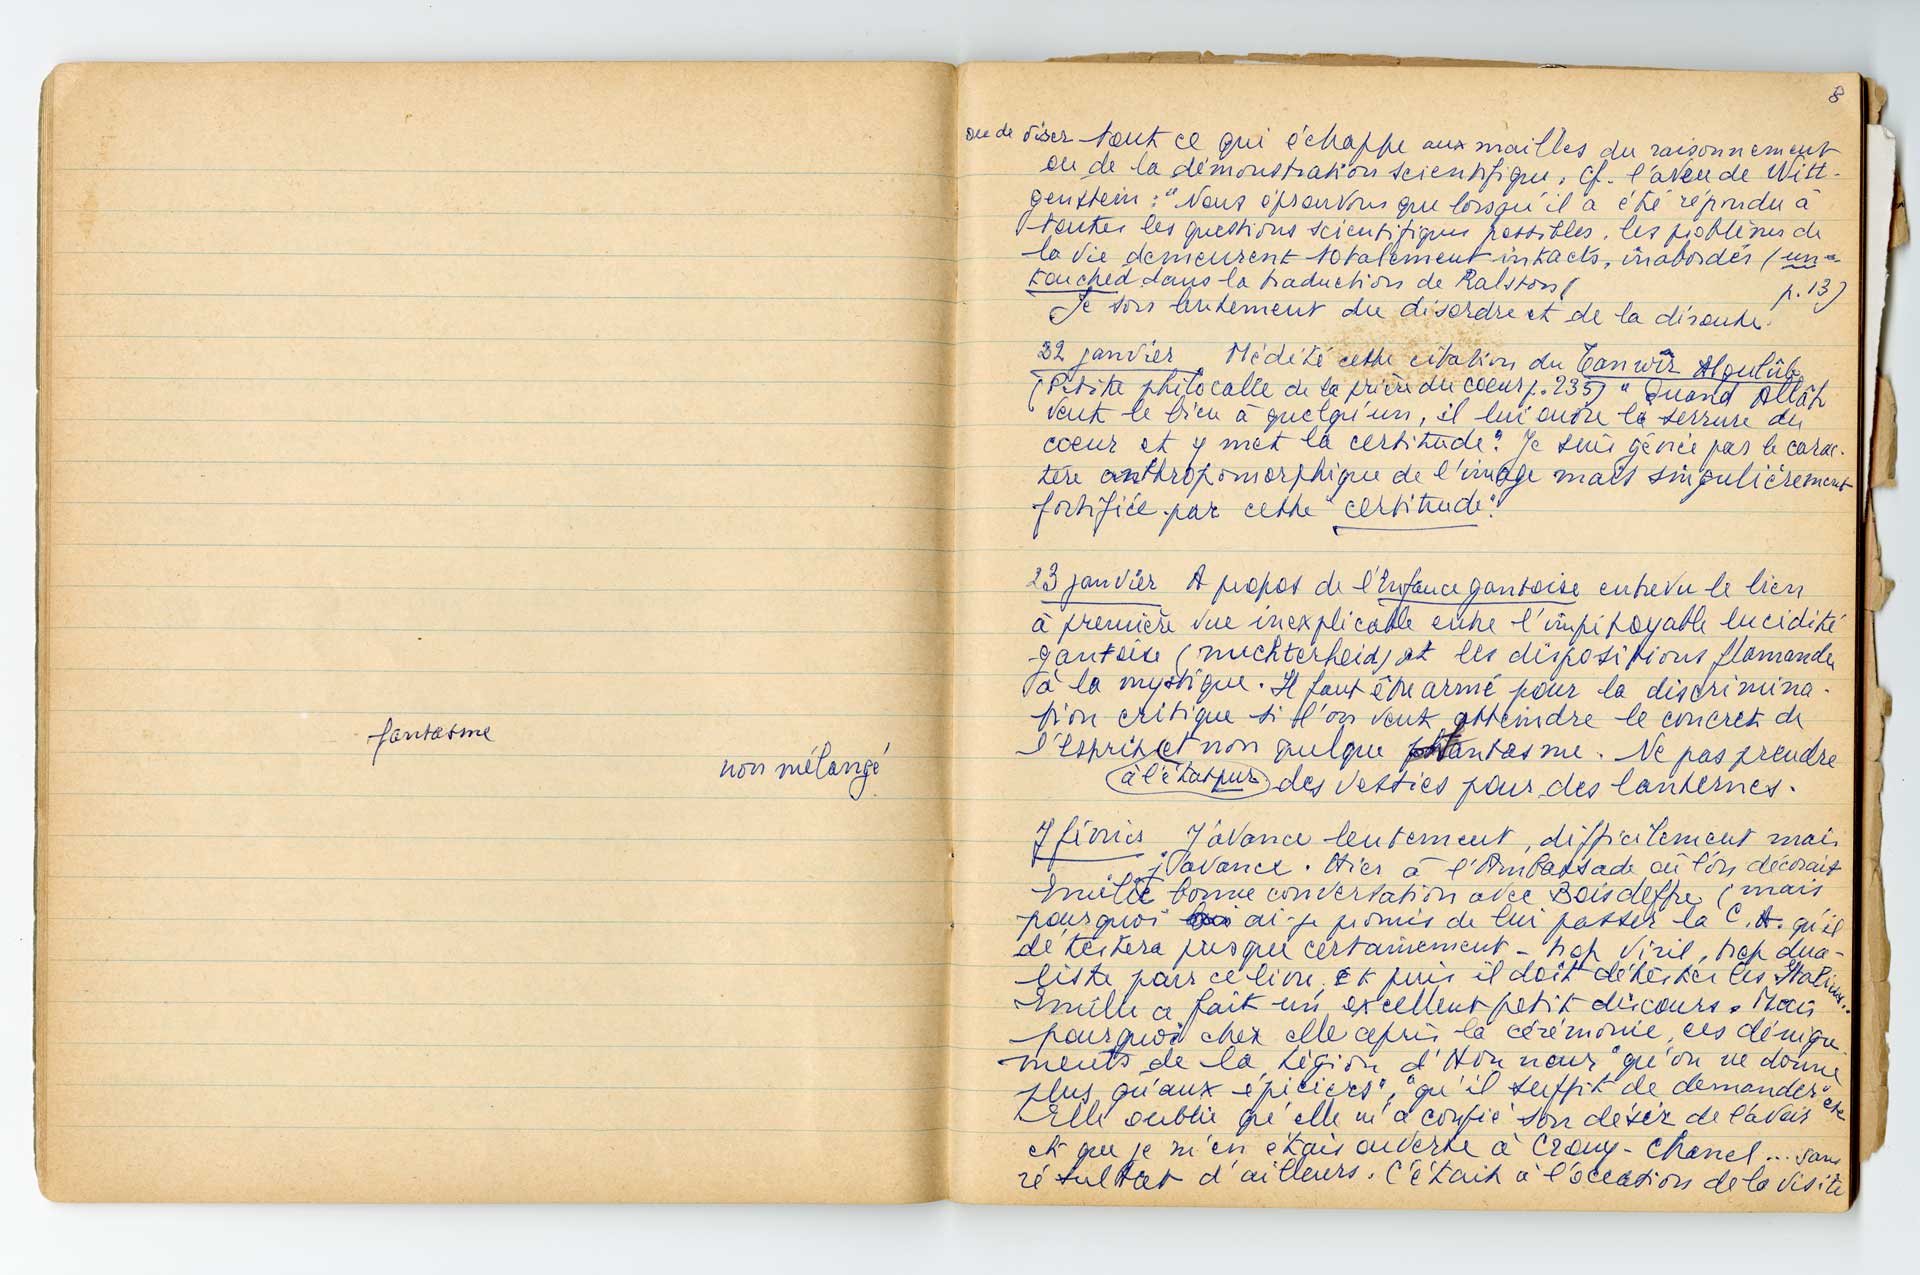 fantasme
non mélangé
8
ou de viser tout ce qui échappe aux mailles du raisonnement
ou de la démonstration scientifique, cf. l'aveu de Witt-
genstein : "Nous éprouvons que lorsqu'il a été répondu à
toutes les questions scientifiques possibles, les problèmes de
la vie demeurent totalement intacts, inabordés (un-
touched dans la traduction de Ralston, p. 13)
Je sors lentement du désordre et de la déroute.
22 janvier Médité cette citation du Tanwîr Alqulûb
(Petite philocalie de la prière du coeur p. 235) "Quand Allâh
veut le bien à quelqu'un, il lui ouvre la serrure du
coeur et y met la certitude". Je suis gênée par le carac-
tère anthropomorphique de l'image mais singulièrement
fortifiée par cette "certitude".
23 janvier A propos de l'Enfance gantoise entrevu le lien
à première vue inexplicable entre l'impitoyable lucidité
gantoise (nuchterheid) et les dispositions flamandes
à la mystique. Il faut être armé pour la discrimina-
tion critique si l'on veut atteindre le concret de
l'esprit et non quelque fantasme. Ne pas prendre
à l'état pur des vessies pour des lanternes.
7 février J'avance lentement, difficilement mais
j'avance. Hier à l'Ambassade où l'on décorait
Emilie bonne conversation avec Boisdeffre (mais
pourquoi ai-je promis de lui passer la C. A. qu'il
détestera presque certainement - trop viril, trop dua-
liste pour ce livre. Et puis il doit détester les Italiens..
Emilie a fait un excellent petit discours. Mais
pourquoi chez elle après la cérémonie, ces dénigre-
ments de la Légion d'Honneur "qu'on ne donne
plus qu'aux épiciers", "qu'il suffit de demander" etc
Elle oublie qu'elle m'a confié son désir de l'avoir
et que je m'en étais ouverte à Crouy-Chanel... sans
résultat d'ailleurs. C'était à l'occasion de la visite